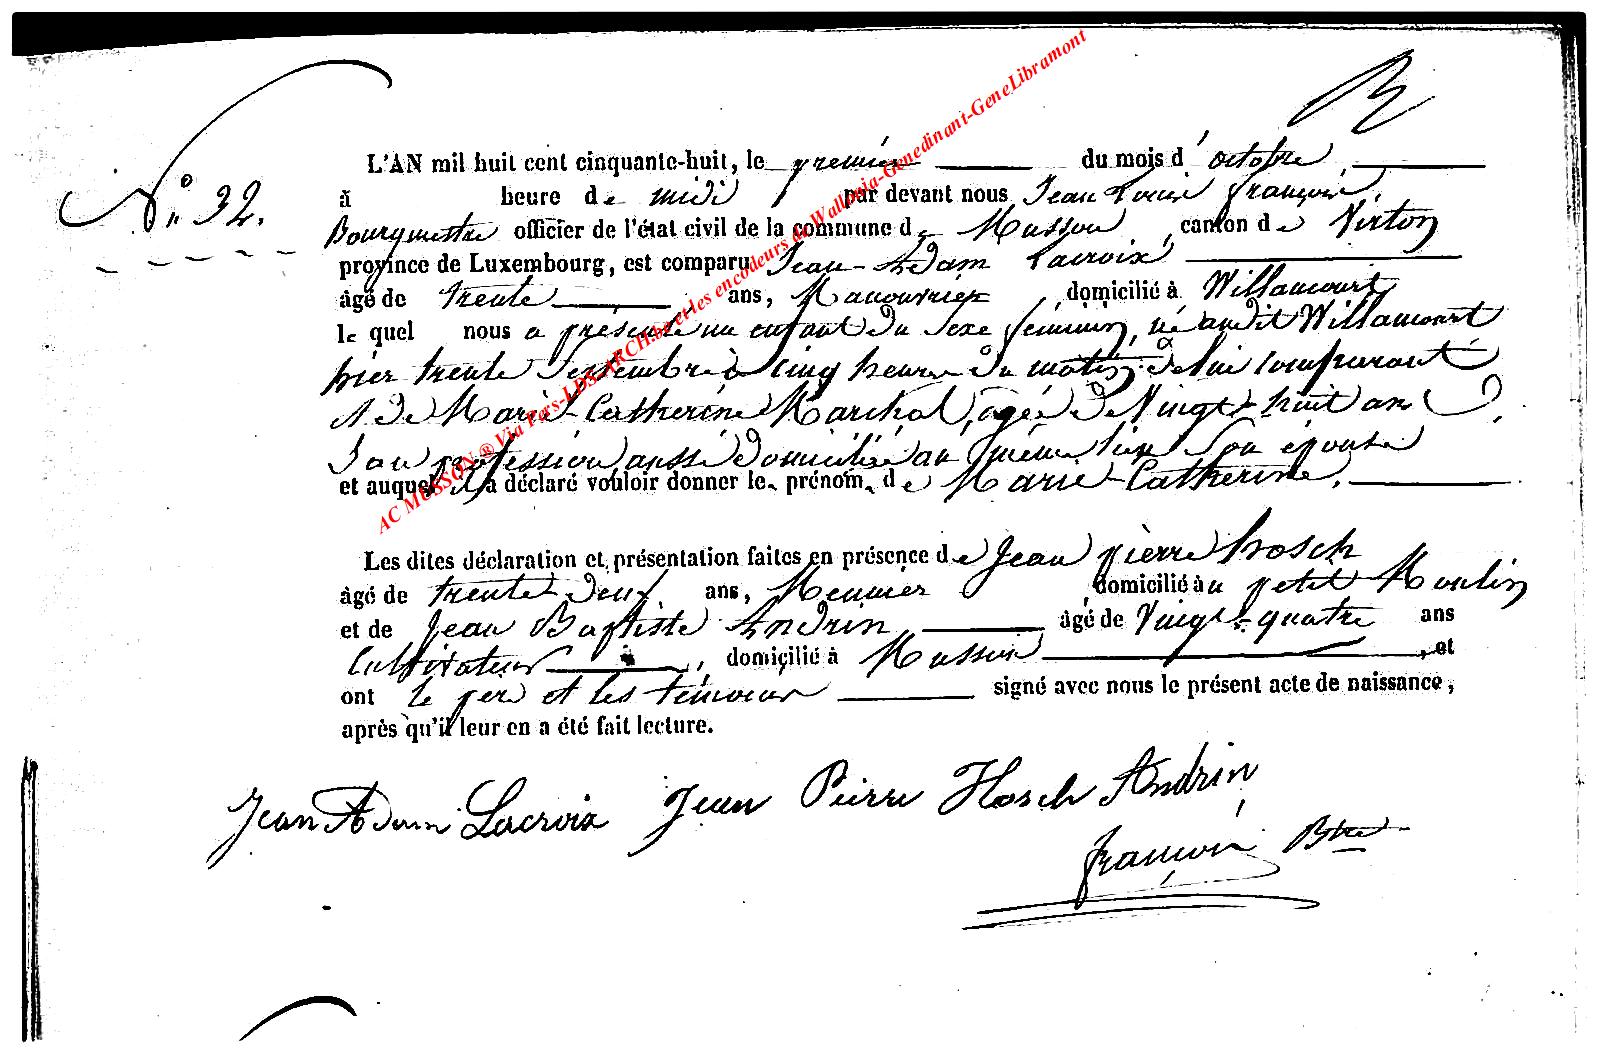 L'AN mil huit cent cinquante-huit, le premier du mois d' octobre
N° 32. à heure de midi par devant nous Jean Louis François,
Bourgmestre officier de l'état civil de la commune de Musson, canton de Virton
province de Luxembourg, est comparu Jean-Adam Lacroix,
âgé de trente ans, Manouvrier domicilié à Willancourt,
le quel nous a présenté un enfant du sexe féminin, né audit Willancourt
hier trente septembre à cinq heures du matin, de lui comparant
& de Marie-Catherine Marchal, agée de Vingt-huit ans,
san profession, aussi domiciliée au même lieu son épouse
et auquel il a déclaré vouloir donner le prénom de Marie-Catherine.
Les dites déclaration et présentation faites en présence de Jean pierre hosch
âgé de trente-deux ans, Meunier, domicilié au petit Moulin
et de Jean Baptiste Andrin âgé de Vingt-quatre ans
Cultivateur, domicilié à Musson, et
ont le pere et les témoins signé avec nous le présent acte de naissance,
après qu'il leur en a été fait lecture.
Jean Adam Lacroix Jean Pierre Hosch Andrin
françois Btre
AC MUSSON ® Via l'ars-LDS-ARCH.be et les encodeurs de Wallonia-Genedinant-GeneLibramont